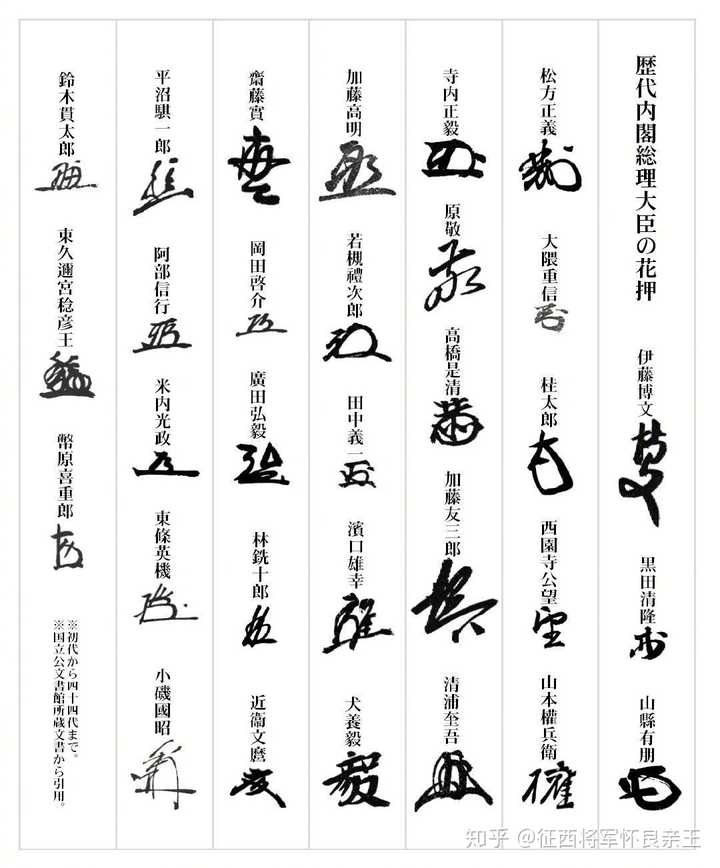 歴代内閣総理大臣の花押
伊藤博文
黒田清隆
山縣有朋
松方正義
大隈重信
桂太郎
西園寺公望
山本權兵衛
寺内正毅
原敬
高橋是清
加藤友三郎
清浦奎吾
加藤高明
若槻禮次郎
田中義一
濱口雄幸
犬養毅
齋藤實
岡田啓介
廣田弘毅
林銑十郎
近衞文麿
平沼騏一郎
阿部信行
米内光政
東條英機
小磯國昭
鈴木貫太郎
東久邇宮稔彦王
幣原喜重郎
※初代から四十四代まで。
※国立公文書館所蔵文書から引用。
知乎 @征西将军怀良亲王